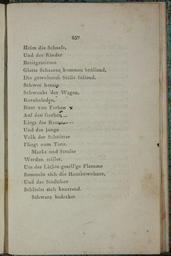 257
Heim die Schaafe,
Und der Rinder
Breitgestirnte
Glatte Schaaren kommen brüllend,
Die gewohnten Ställe füllend.
Schwer herein
Schwankt der Wagen,
Kornbeladen,
Bunt von Farben
Auf den Garben
Liegt der Kranz
Und das junge
Volk der Schnitter
Fliegt zum Tanz.
Markt und Straße
Werden stiller,
Um des Lichts gesell'ge Flamme
Sammeln sich die Hausbewohner,
Und das Stadtthor
Schließt sich knarrend.
Schwarz bedecket